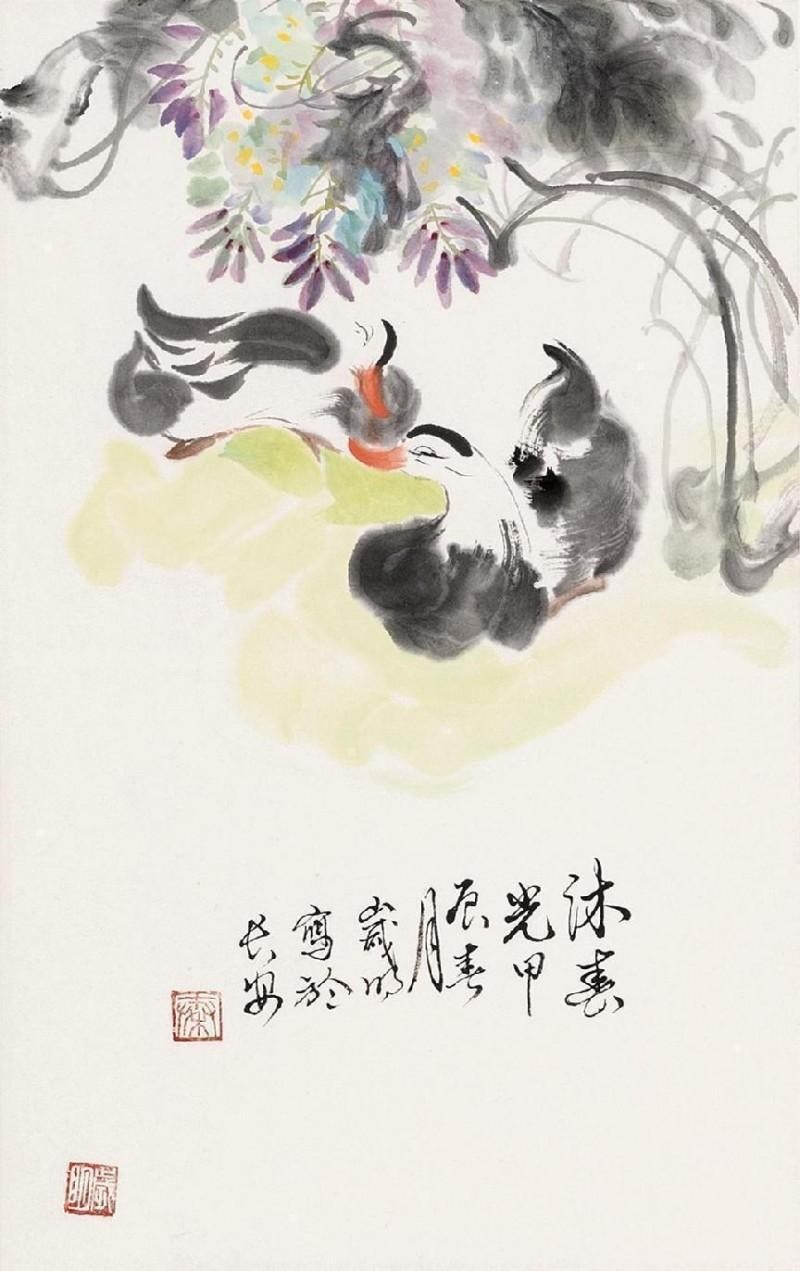 沐春
光甲
辰春
月
歲明
寫於
長安
歲明